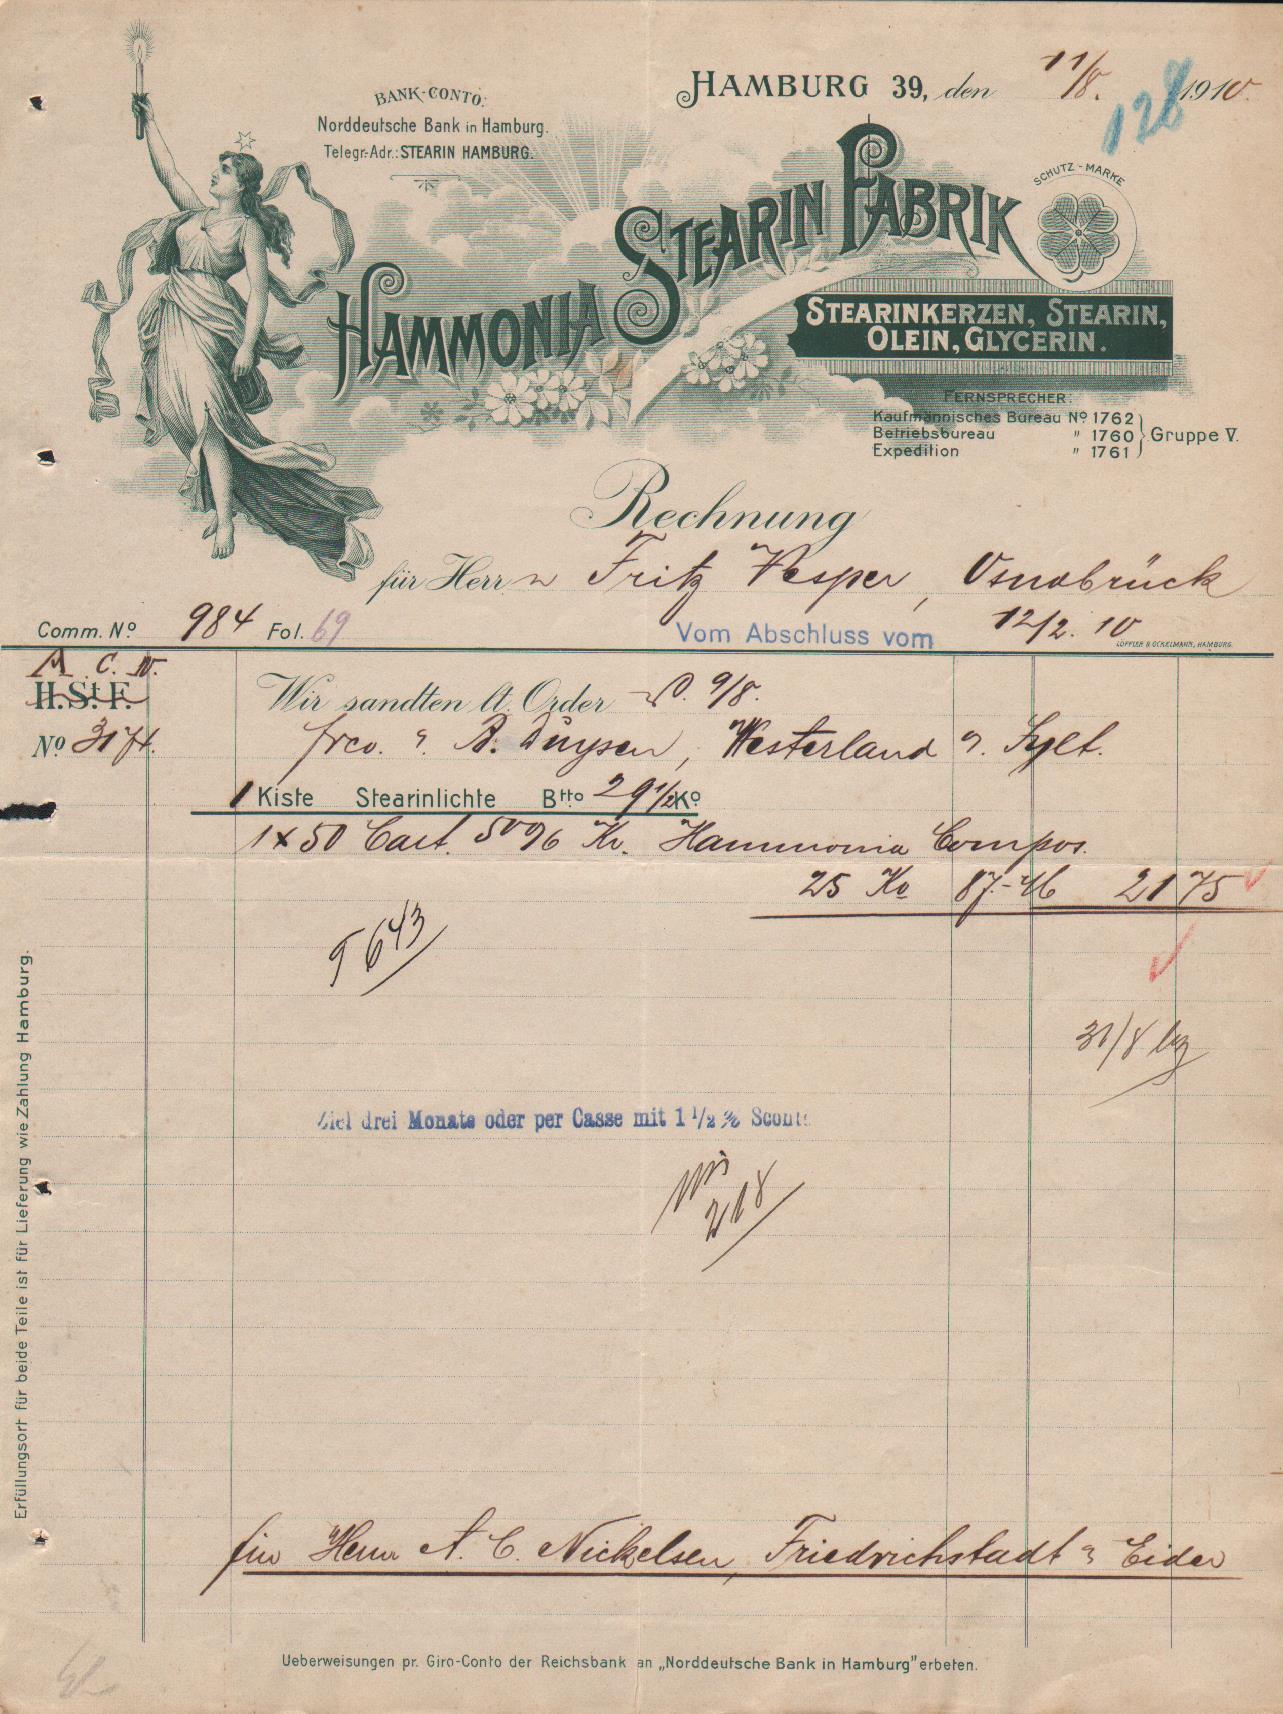 BANK-CONTO:
Norddeutsche Bank in Hamburg.
Telegr.-Adr.: STEARIN HAMBURG.
HAMBURG 39, den 11/8. 1910.
128
HAMMONIA STEARIN FABRIK
SCHUTZ-MARKE
STEARINKERZEN, STEARIN,
OLEIN, GLYCERIN.
FERNSPRECHER:
Kaufmännisches Bureau No 1762
Betriebsbureau " 1760
Expedition " 1761
Gruppe V.
Rechnung
für Herrn Fritz Vesper, Osnabrück
Comm. No 984 Fol. 69
Vom Abschluss vom 12/2. 10
LÖPPLER & OCKELMANN, HAMBURG.
H. St. F.
No
Wir sandten lt. Order 9/8.
frco. Duysen, Westerland a. Sylt.
1 Kiste Stearinlichte Btto 29 1/2 Ko
1 x 50 Cart. Hammonia Compos.
25 Ko 87.- 21 75
5643
31/8
Ziel drei Monate oder per Casse mit 1 1/2 % Sconto
218
für Herrn A. C. Nickelsen, Friedrichstadt a Eider
Ueberweisungen pr. Giro-Conto der Reichsbank an „Norddeutsche Bank in Hamburg" erbeten.
Erfüllungsort für beide Teile ist für Lieferung wie Zahlung Hamburg.